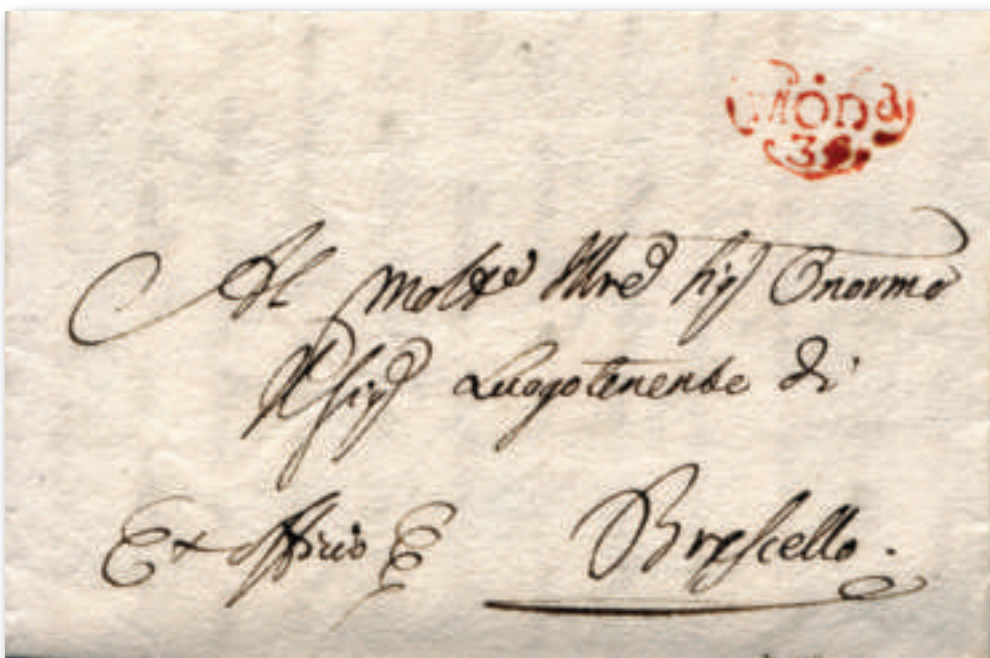 Moña
Al Molto Illre Sigr Onormo
Luogotenente di
Ex officio Brescello.